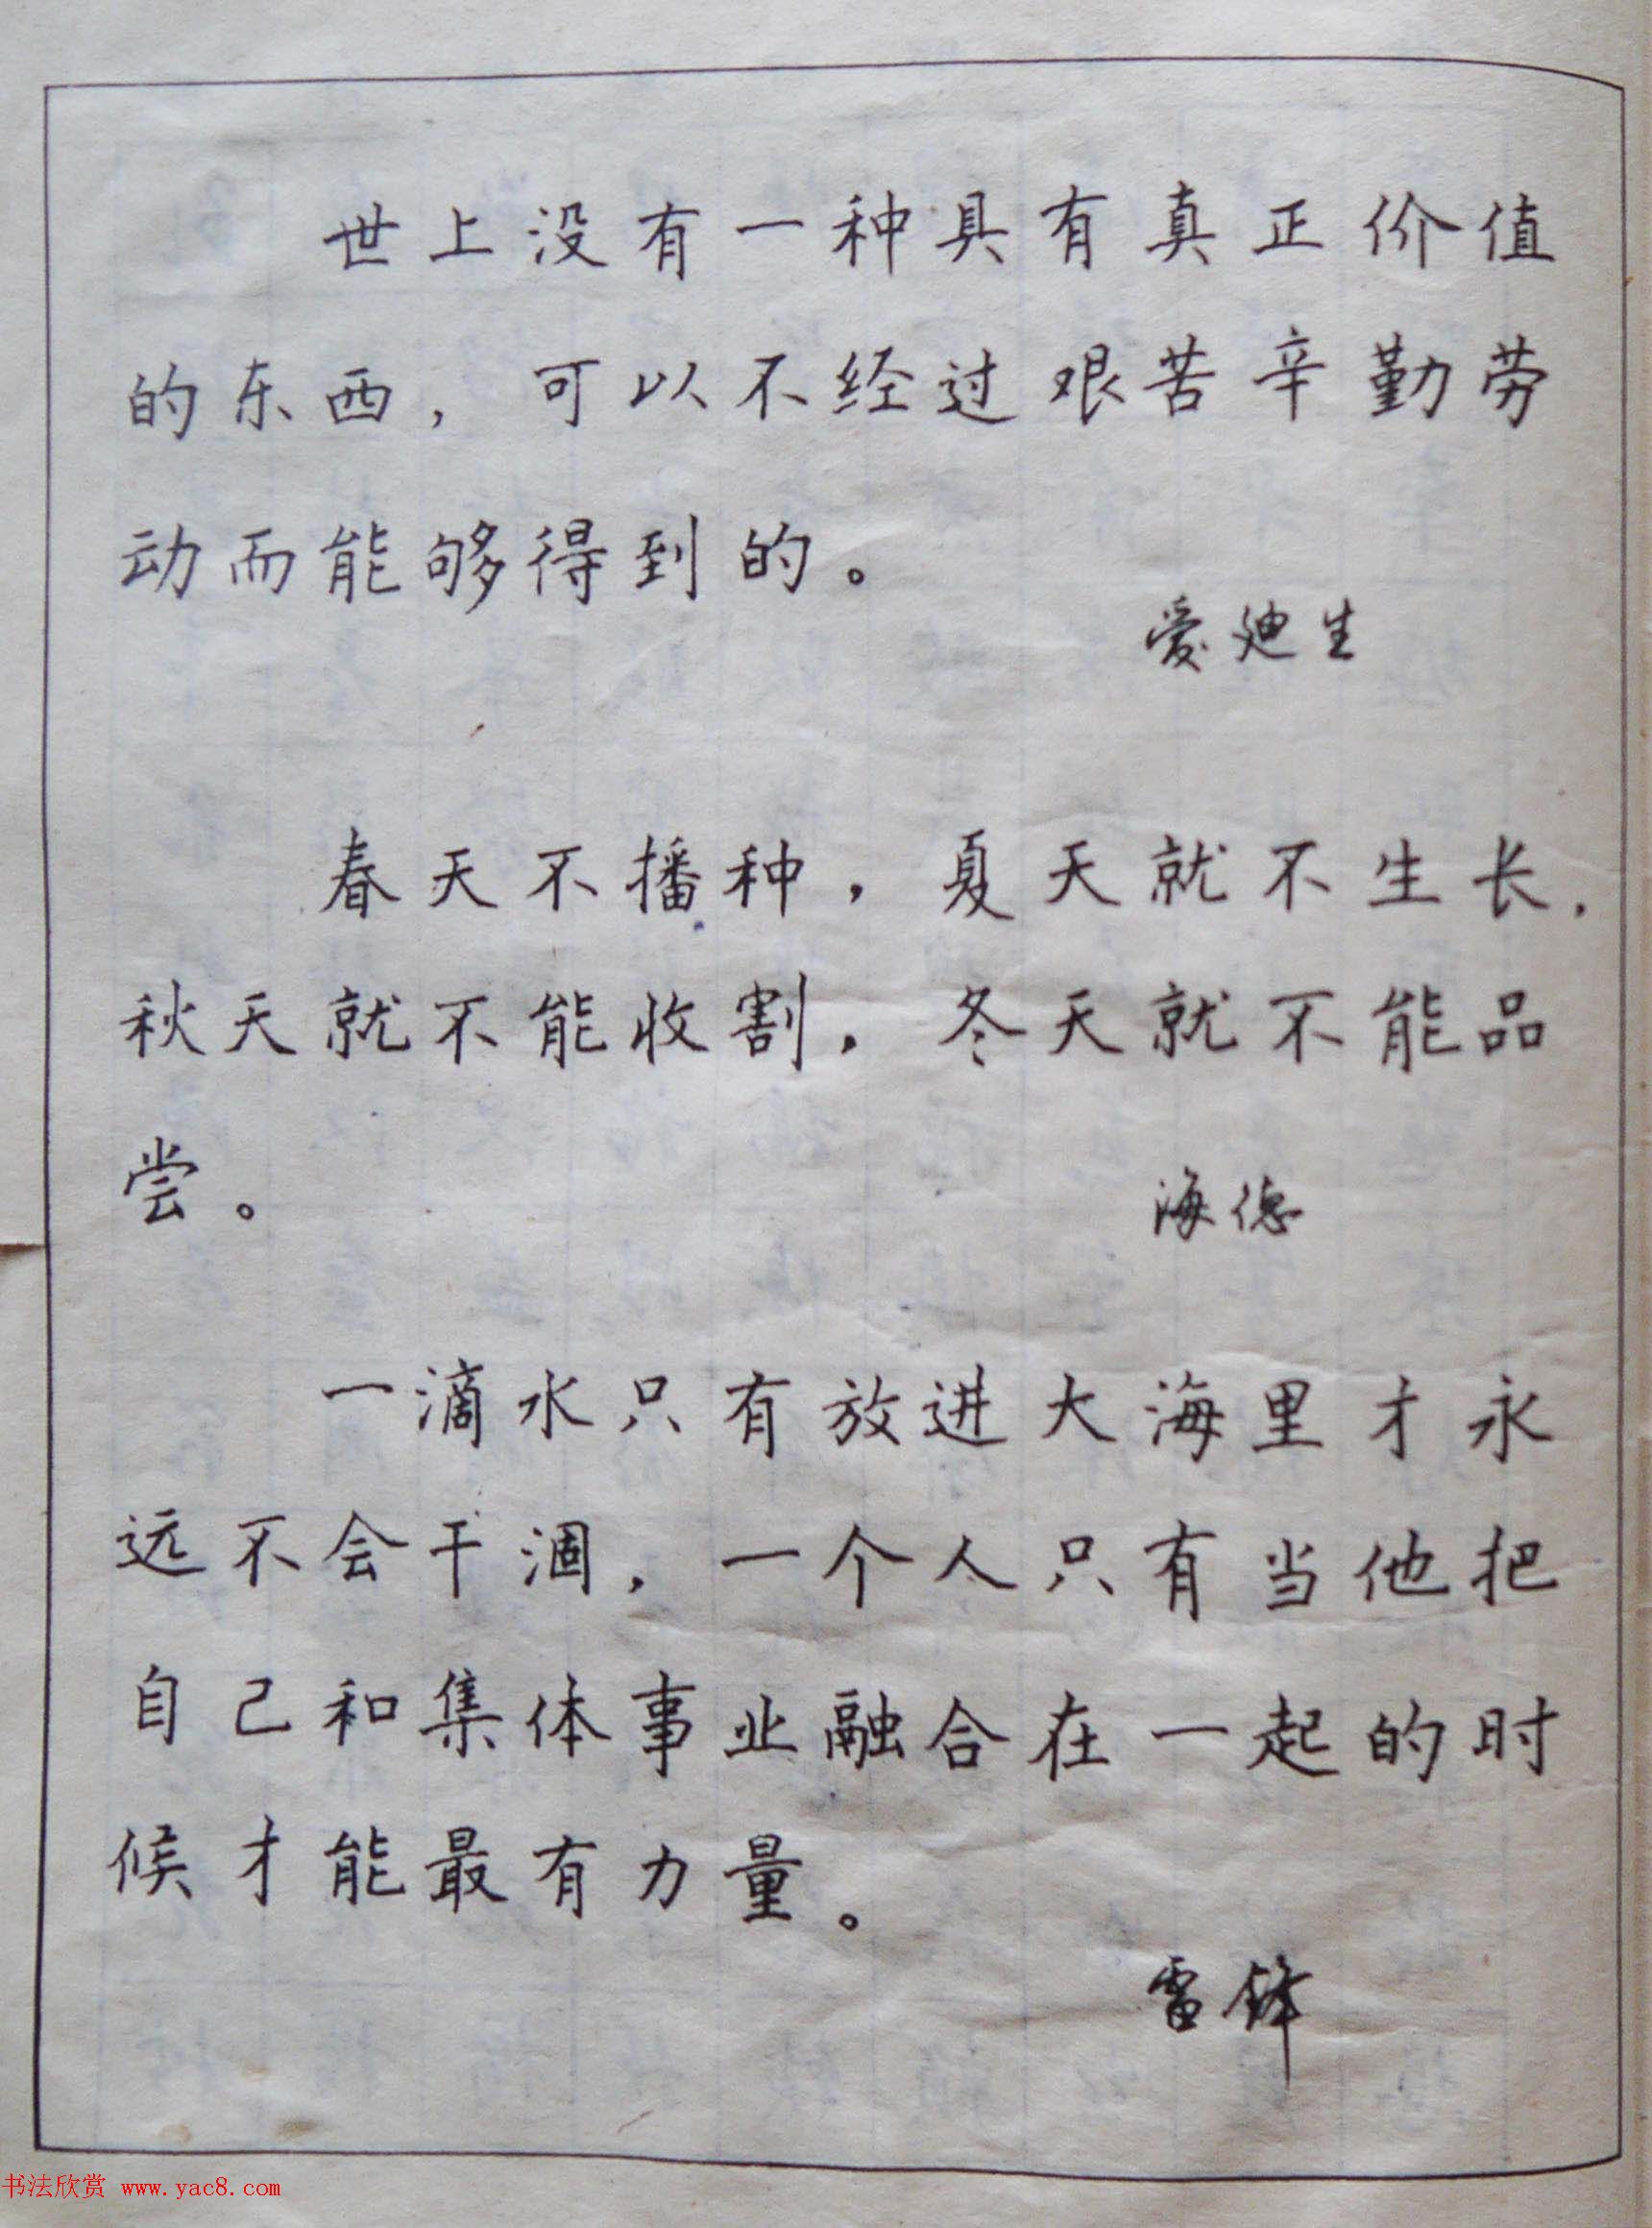 世上没有一种具有真正价值
的东西，可以不经过艰苦辛勤劳
动而能够得到的。
爱迪生
春天不播种，夏天就不生长，
秋天就不能收割，冬天就不能品
尝。
海德
一滴水只有放进大海里才永
远不会干涸，一个人只有当他把
自己和集体事业融合在一起的时
候才能最有力量。
雷锋
书法欣赏 www.yac8.com